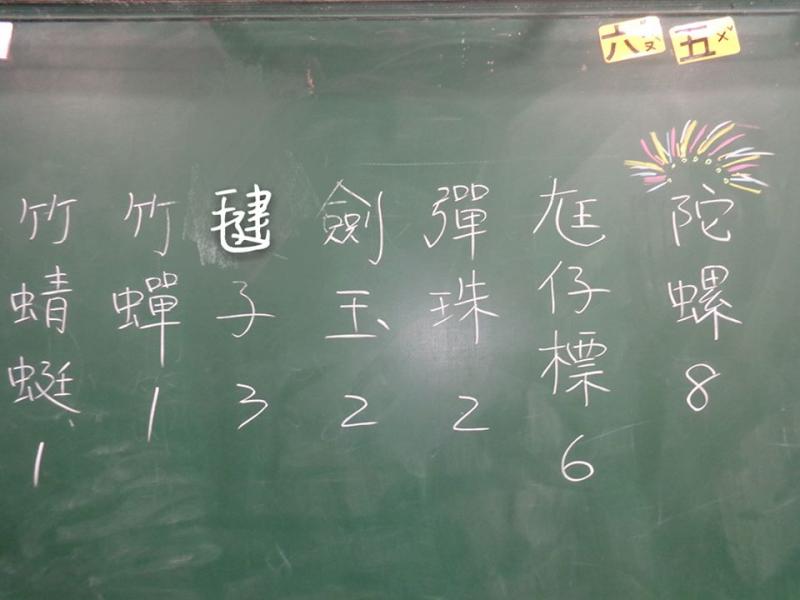 五ㄨˇ
六
陀螺8
尪仔標6
彈珠2
劍玉2
毽子3
竹蟬1
竹蜻蜓1